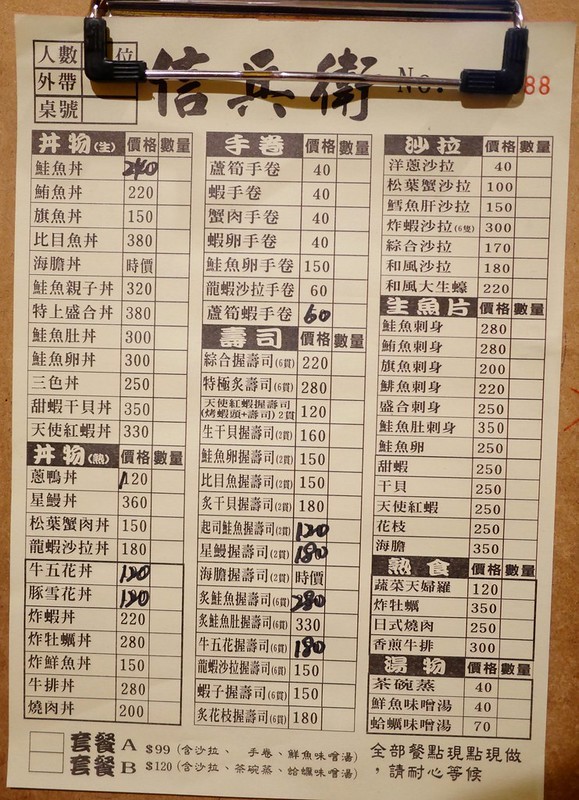 人數 位
外帶
桌號
信兵衛 No. 88
丼物(生) 價格 數量
鮭魚丼 240
鮪魚丼 220
旗魚丼 150
比目魚丼 380
海膽丼 時價
鮭魚親子丼 320
特上盛合丼 380
鮭魚肚丼 300
鮭魚卵丼 300
三色丼 250
甜蝦干貝丼 350
天使紅蝦丼 330
丼物(熟) 價格 數量
蔥鴨丼 120
星鰻丼 360
松葉蟹肉丼 150
龍蝦沙拉丼 180
牛五花丼 120
豚雪花丼 120
炸蝦丼 220
炸牡蠣丼 280
炸鮮魚丼 150
牛排丼 280
燒肉丼 200
手卷 價格 數量
蘆筍手卷 40
蝦手卷 40
蟹肉手卷 40
蝦卵手卷 40
鮭魚卵手卷 150
龍蝦沙拉手卷 60
蘆筍蝦手卷 60
壽司 價格 數量
綜合握壽司(6貫) 220
特極炙壽司(6貫) 280
天使紅蝦握壽司
(烤蝦頭+壽司)2貫 120
生干貝握壽司(2貫) 160
鮭魚卵握壽司(2貫) 150
比目魚握壽司(2貫) 150
炙干貝握壽司(2貫) 180
起司鮭魚握壽司(2貫) 120
星鰻握壽司(2貫) 180
海膽握壽司(2貫) 時價
炙鮭魚握壽司(6貫) 280
炙鮭魚肚握壽司(6貫) 330
牛五花握壽司(6貫) 180
龍蝦沙拉握壽司(6貫) 150
蝦子握壽司(6貫) 150
炙花枝握壽司(6貫) 180
沙拉 價格 數量
洋蔥沙拉 40
松葉蟹沙拉 100
鱈魚肝沙拉 150
炸蝦沙拉(6隻) 300
綜合沙拉 170
和風沙拉 180
和風大生蠔 220
生魚片 價格 數量
鮭魚刺身 280
鮪魚刺身 280
旗魚刺身 200
鯡魚刺身 220
盛合刺身 250
鮭魚肚刺身 350
鮭魚卵 250
甜蝦 250
干貝 250
天使紅蝦 250
花枝 250
海膽 350
熟食 價格 數量
蔬菜天婦羅 120
炸牡蠣 350
日式燒肉 250
香煎牛排 300
湯物 價格 數量
茶碗蒸 40
鮮魚味噌湯 40
蛤蠣味噌湯 70
套餐A $99(含沙拉、 手卷、鮮魚味噌湯)
套餐B $120(含沙拉、茶碗蒸、蛤蠣味噌湯)
全部餐點現點現做
，請耐心等候